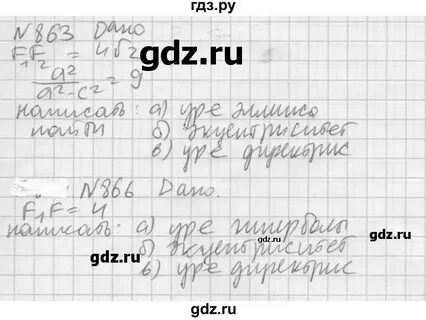 гдз.рф
N863 Дано
F₁F₂ = 4√2
a²/(a²-c²) = 9
написать: а) уре эллипса
найти б) экцентриситет
в) уре директрис
N866 Дано.
F₁F = 4
написать: а) уре гиперболы
б) экцентриситет
в) уре директрис
gdz.ru
gdz.ru
gdz.ru
gdz.ru
gdz.ru
gdz.ru
gdz.ru
gdz.ru
gdz.ru